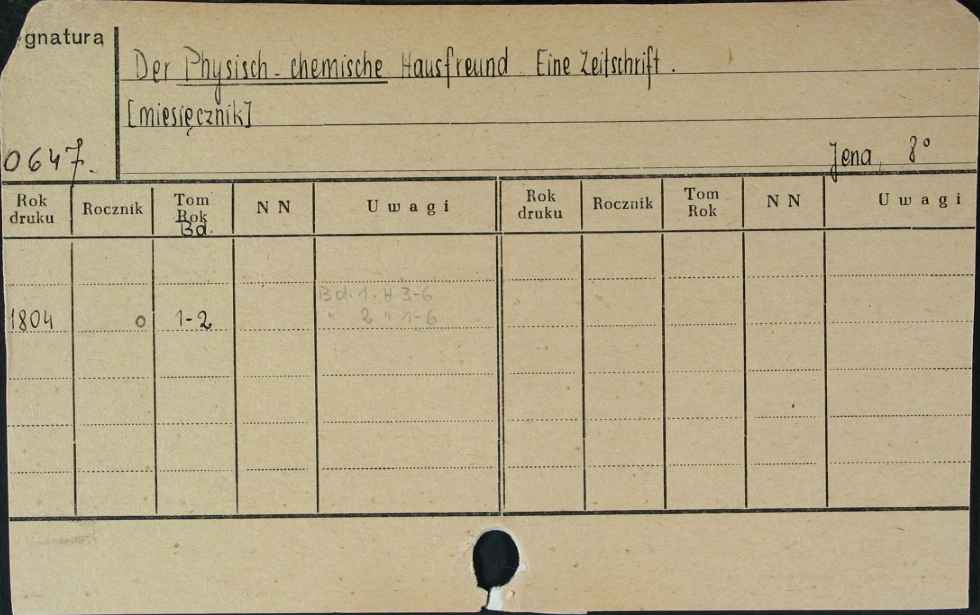 gnatura
Der Physisch-chemische Hausfreund. Eine Zeitschrift.
[miesięcznik]
0647.
Jena, 8°
Rok druku Rocznik Tom Rok Bd. NN Uwagi Rok druku Rocznik Tom Rok NN Uwagi
Bd. 1. H 3-6
1804 0 1-2 " 2 " 1-6